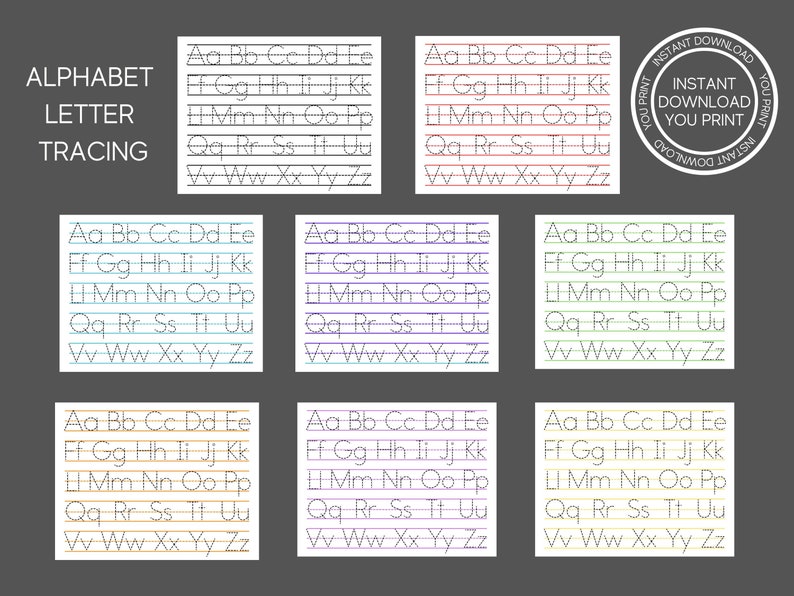 ALPHABET
LETTER
TRACING
Aa Bb Cc Dd Ee
Ff Gg Hh Ii Jj Kk
Ll Mm Nn Oo Pp
Qq Rr Ss Tt Uu
Vv Ww Xx Yy Zz
Aa Bb Cc Dd Ee
Ff Gg Hh Ii Jj Kk
Ll Mm Nn Oo Pp
Qq Rr Ss Tt Uu
Vv Ww Xx Yy Zz
INSTANT DOWNLOAD
YOU PRINT
INSTANT DOWNLOAD
YOU PRINT
INSTANT
DOWNLOAD
YOU PRINT
Aa Bb Cc Dd Ee
Ff Gg Hh Ii Jj Kk
Ll Mm Nn Oo Pp
Qq Rr Ss Tt Uu
Vv Ww Xx Yy Zz
Aa Bb Cc Dd Ee
Ff Gg Hh Ii Jj Kk
Ll Mm Nn Oo Pp
Qq Rr Ss Tt Uu
Vv Ww Xx Yy Zz
Aa Bb Cc Dd Ee
Ff Gg Hh Ii Jj Kk
Ll Mm Nn Oo Pp
Qq Rr Ss Tt Uu
Vv Ww Xx Yy Zz
Aa Bb Cc Dd Ee
Ff Gg Hh Ii Jj Kk
Ll Mm Nn Oo Pp
Qq Rr Ss Tt Uu
Vv Ww Xx Yy Zz
Aa Bb Cc Dd Ee
Ff Gg Hh Ii Jj Kk
Ll Mm Nn Oo Pp
Qq Rr Ss Tt Uu
Vv Ww Xx Yy Zz
Aa Bb Cc Dd Ee
Ff Gg Hh Ii Jj Kk
Ll Mm Nn Oo Pp
Qq Rr Ss Tt Uu
Vv Ww Xx Yy Zz